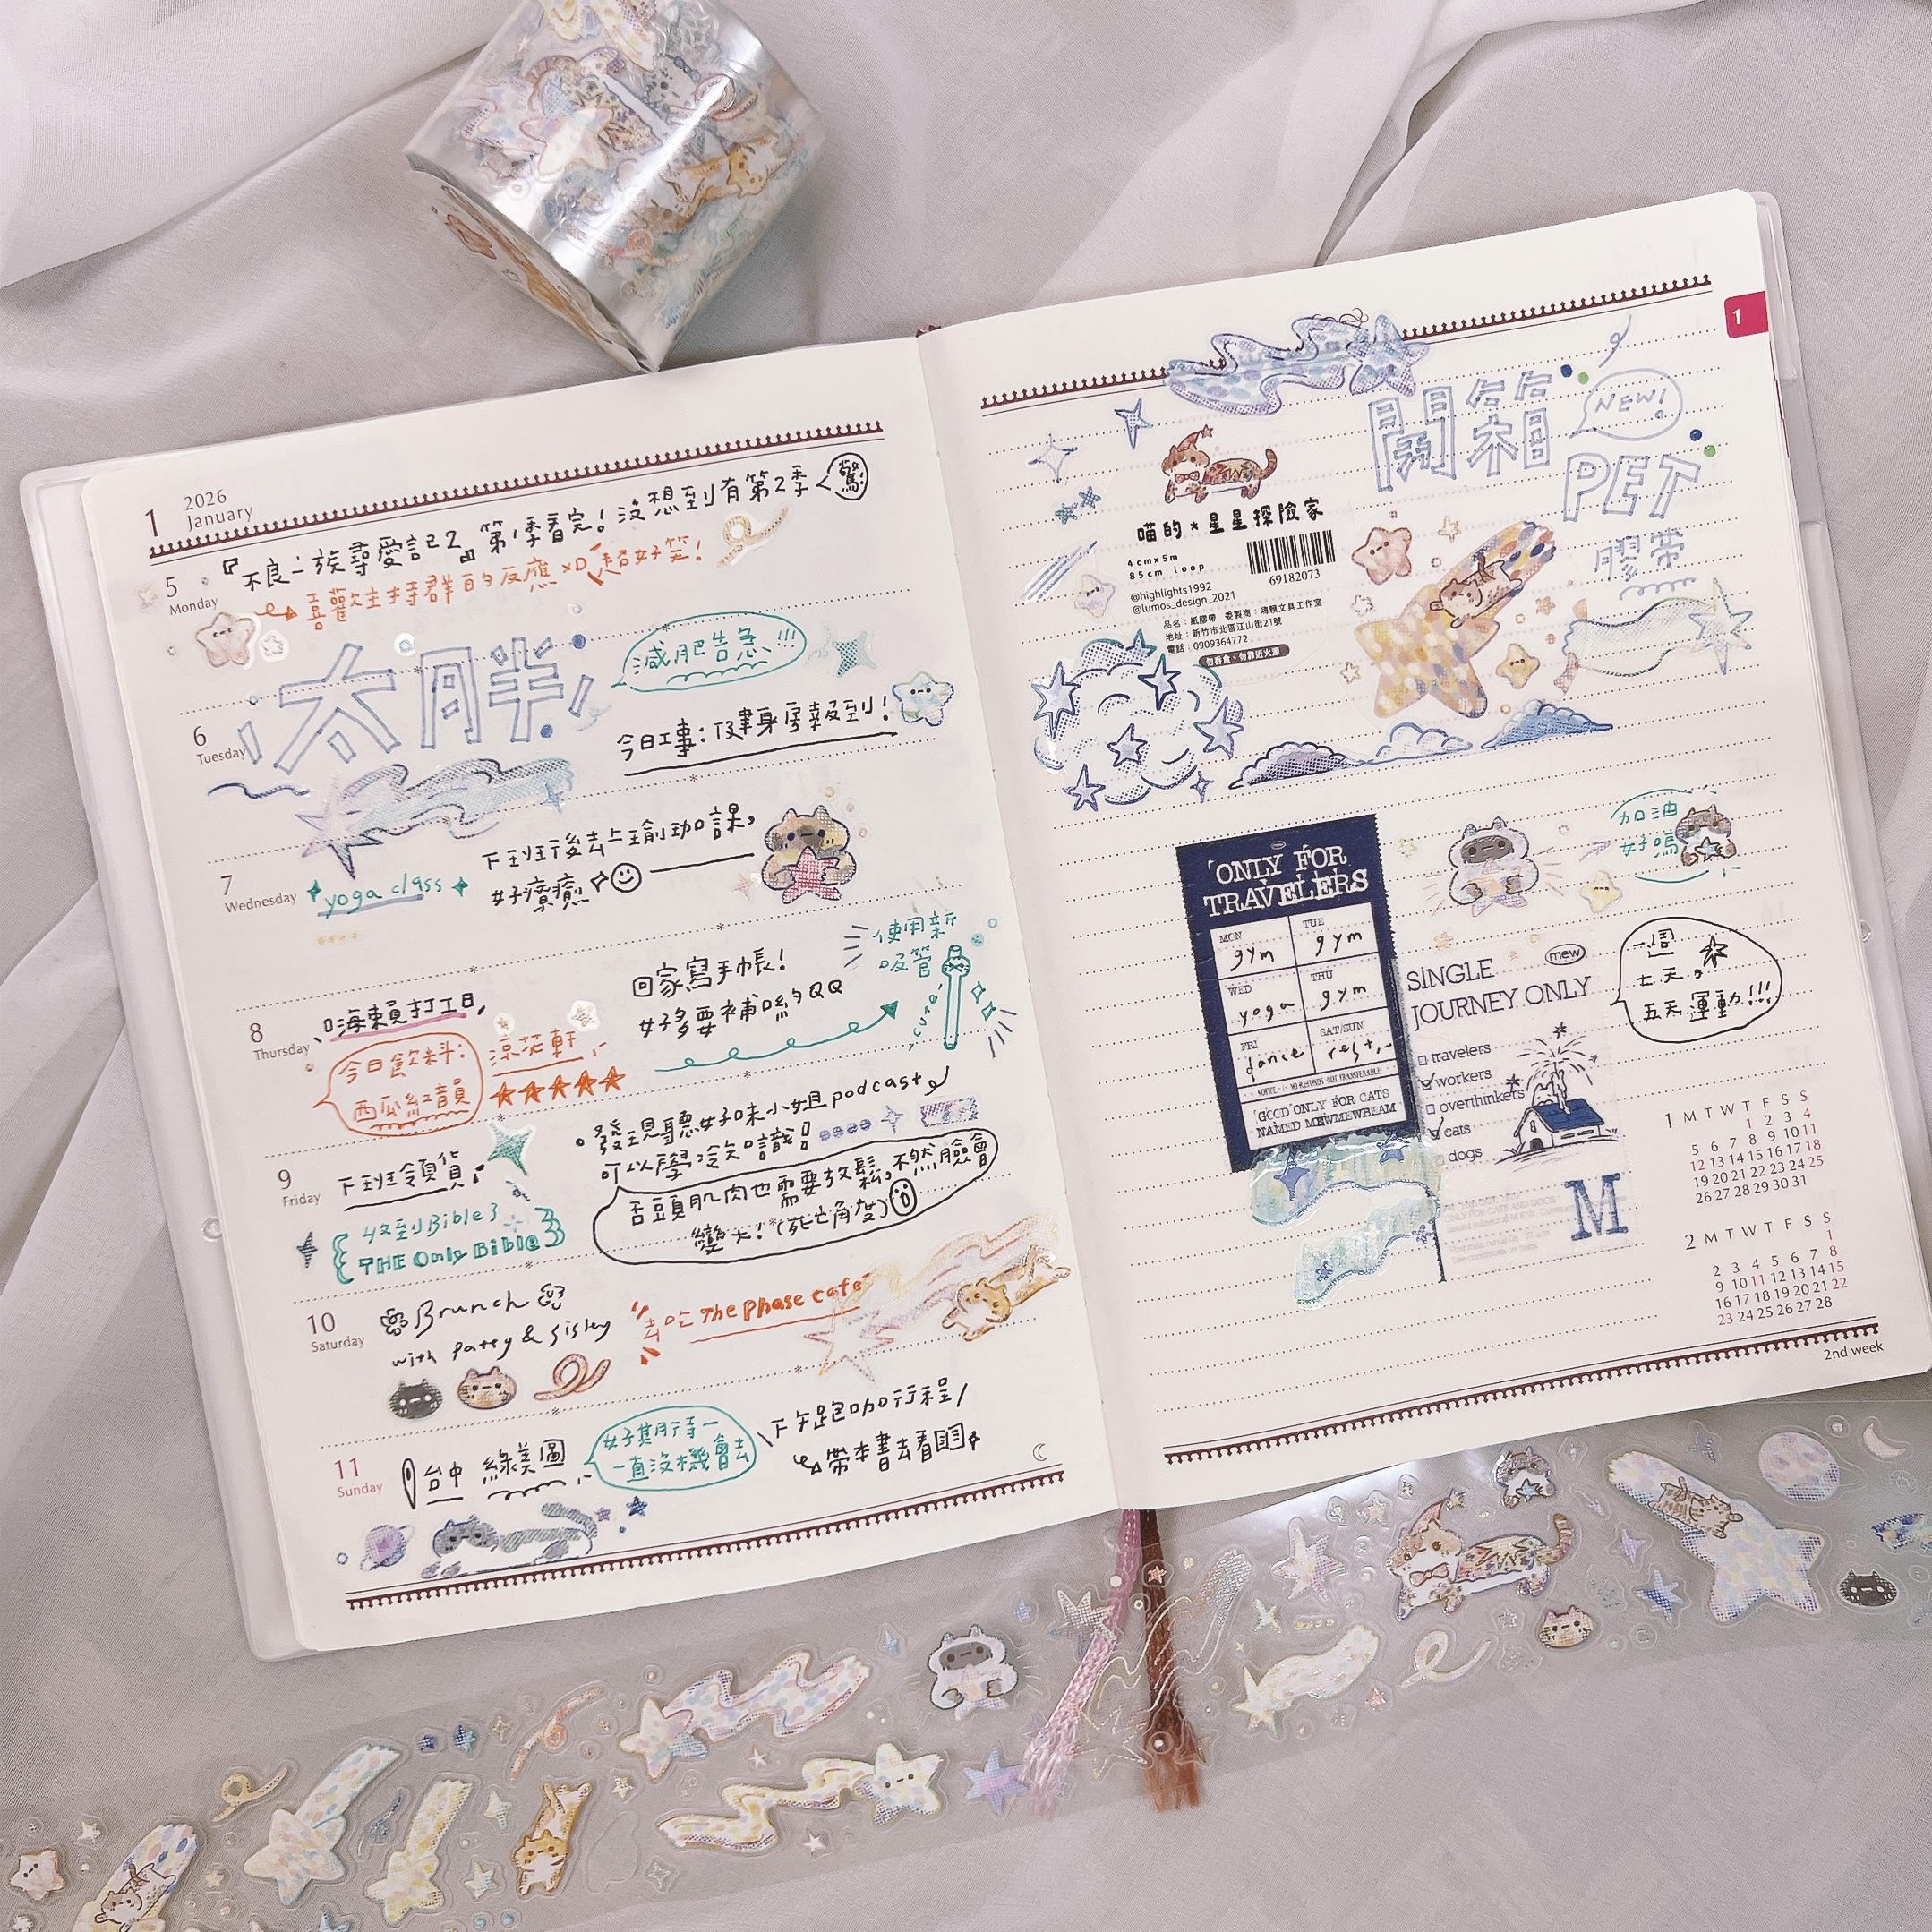 1
2026
January
『不良一族尋愛記2』第1季看完！沒想到有第2季<驚
喜歡主持群的反應XD 超好笑！
5
Monday
太胖
減肥告急!!!
今日工事：健身房報到！
6
Tuesday
7
Wednesday
yoga class
下班後去上瑜珈課，
好療癒
8
Thursday
嗨賴打工日，
今日飲料：
西瓜紅韻
涼花軒
回家寫手帳！
好多要補喲QQ
使用新
吸管
cute
9
Friday
下班領貨
收到Bible 3
THE Only Bible
發現聽好味小姐podcast
可以學冷知識！
舌頭肌肉也需要放鬆，不然臉會
變大！(死亡角度)
10
Saturday
Brunch
with patty & sisley
去吃 The Phase cafe
11
Sunday
台中 綠美圖
好期待一
一直沒機會去
下午跑咖行程
帶本書去看
1
開箱
NEW!
PET
膠帶
喵的★星星探險家
4cmx5m
85cm loop
69182073
@highlights1992
@lumos_design_2021
品名：紙膠帶 委製商：嗨賴文具工作室
地址：新竹市北區江山街21號
電話：0909364772
勿吞食、勿靠近火源
ONLY FOR
TRAVELERS
MON
gym
TUE
gym
WED
yoga
THU
gym
FRI
dance
SAT/SUN
rest
GOOD ONLY FOR CATS
NAMED MEWMEWBEAM
加油
好嗎
mew
SINGLE
JOURNEY ONLY
travelers
workers
overthinkers
cats
dogs
M
一週
七天，
五天運動!!!
1 M T W T F S S
1 2 3 4
5 6 7 8 9 10 11
12 13 14 15 16 17 18
19 20 21 22 23 24 25
26 27 28 29 30 31
2 M T W T F S S
1
2 3 4 5 6 7 8
9 10 11 12 13 14 15
16 17 18 19 20 21 22
23 24 25 26 27 28
2nd week